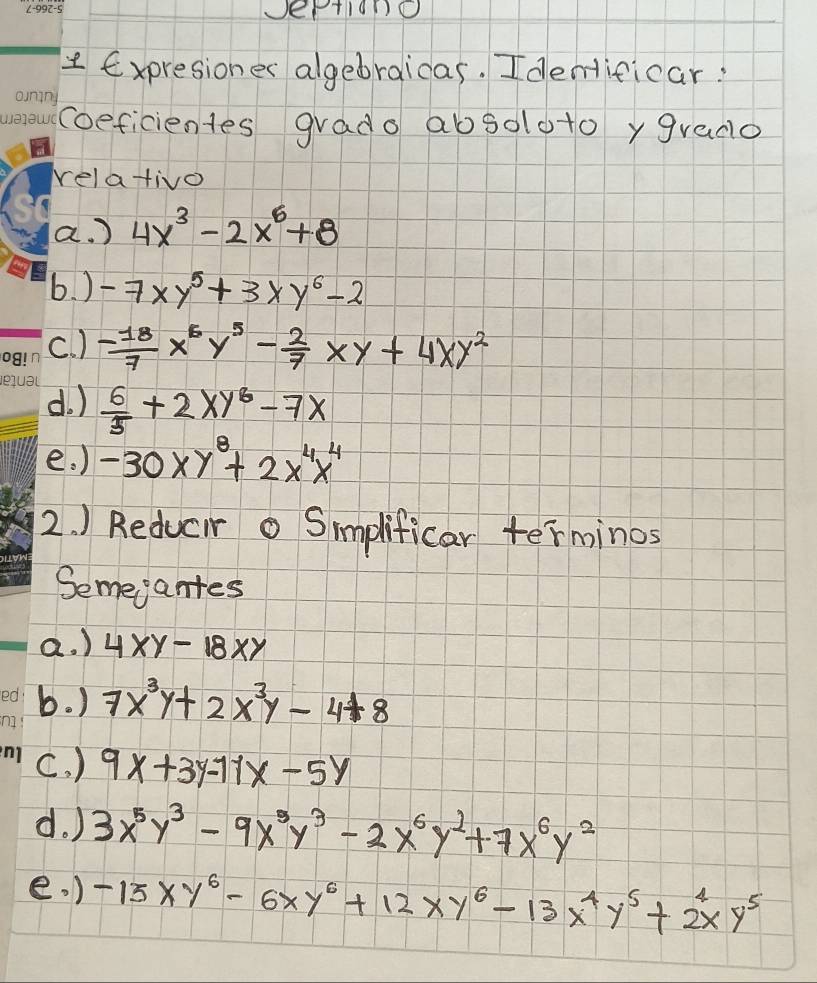 5-266-7
Septimo
1 Expresiones algebraicas. Identificar:
Coeficientes grado absoloto y grado
relativo
a.) 4x³ - 2x⁶ + 8
b.) -7xy⁵ + 3xy⁶ - 2
c.) -18/7 x⁶y⁵ - 2/7 xy + 4xy²
d.) 6/5 + 2xy⁶ - 7x
e.) -30xy⁸ + 2x⁴x⁴
2.) Reducir o Simplificar terminos
Semejantes
a.) 4xy - 18xy
b.) 7x³y + 2x³y - 4 + 8
c.) 9x + 3y - 11x - 5y
d.) 3x⁵y³ - 9x⁵y³ - 2x⁶y² + 7x⁶y²
e.) -15xy⁶ - 6xy⁶ + 12xy⁶ - 13x⁴y⁵ + 2x⁴y⁵